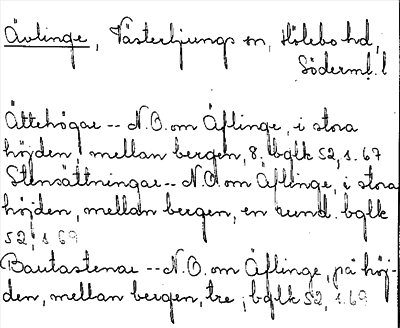 Ävlinge, Västerljungs sn, Hölebo hd,
Söderml. l
Ättehögar -- N.O. om Äflinge, i stora
höjden, mellan bergen, 8. bglk 52, s. 67
Stensättningar -- N.O. om Äflinge, i stora
höjden, mellan bergen, en rund. bglk
52, s 69
Bautastenar -- N.O. om Äflinge, på höj-
den, mellan bergen, tre, bglk 52, s. 69